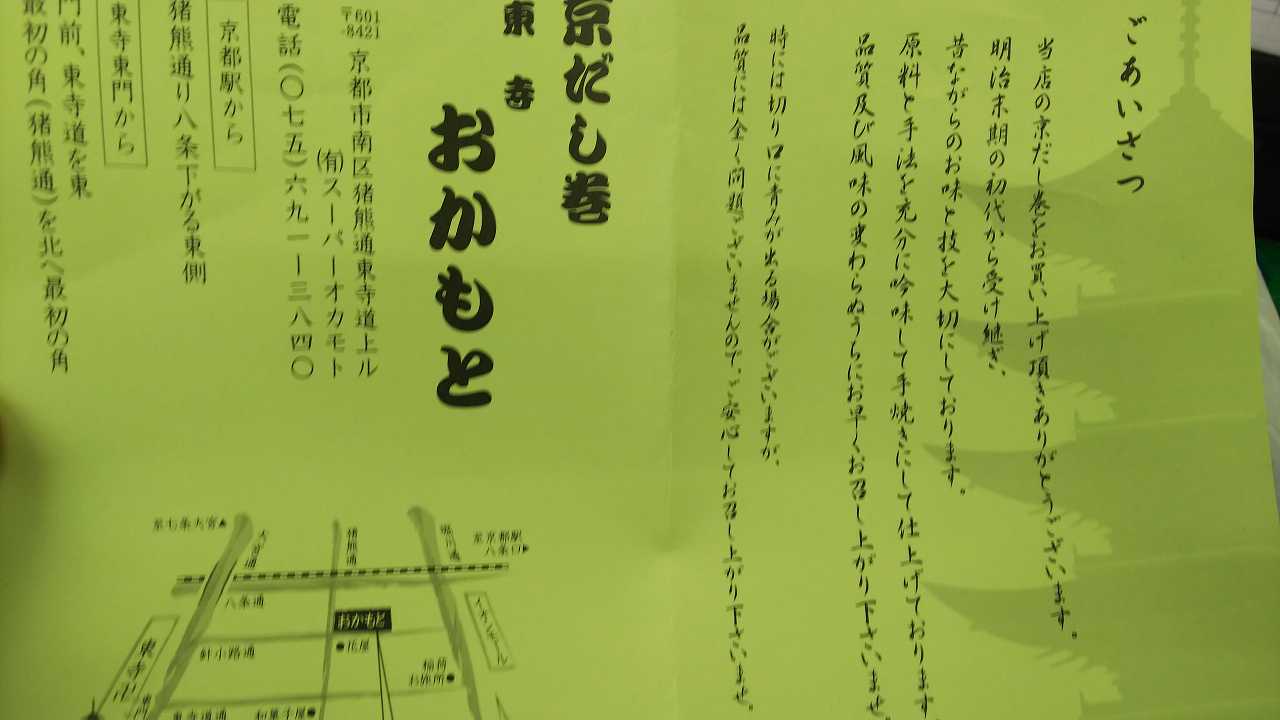 ごあいさつ
当店の京だし巻をお買い上げ頂きありがとうございます。
明治末期の初代から受け継ぎ、
昔ながらのお味と技を大切にしております。
原料と手法を充分に吟味して手焼きにして仕上げております
品質及び風味の変わらぬうちにお早くお召し上がり下さいませ。
時には切り口に青みが出る場合がございますが、
品質には全く問題ございませんので、ご安心してお召し上がり下さいませ。
京だし巻
東寺
おかもと
〒601-8421
京都市南区猪熊通東寺道上ル
(有)スーパーオカモト
電話(〇七五)六九一ー三八四〇
京都駅から
猪熊通り八条下がる東側
東寺東門から
門前、東寺道を東
最初の角(猪熊通)を北へ最初の角
至七条大宮▲
大宮通
猪熊通
堀川通
至京都駅
八条口▶
八条通
おかもと
●花屋
イオンモール
針小路通
稲荷
お旅所●
東寺卍
東寺道通
和菓子屋●